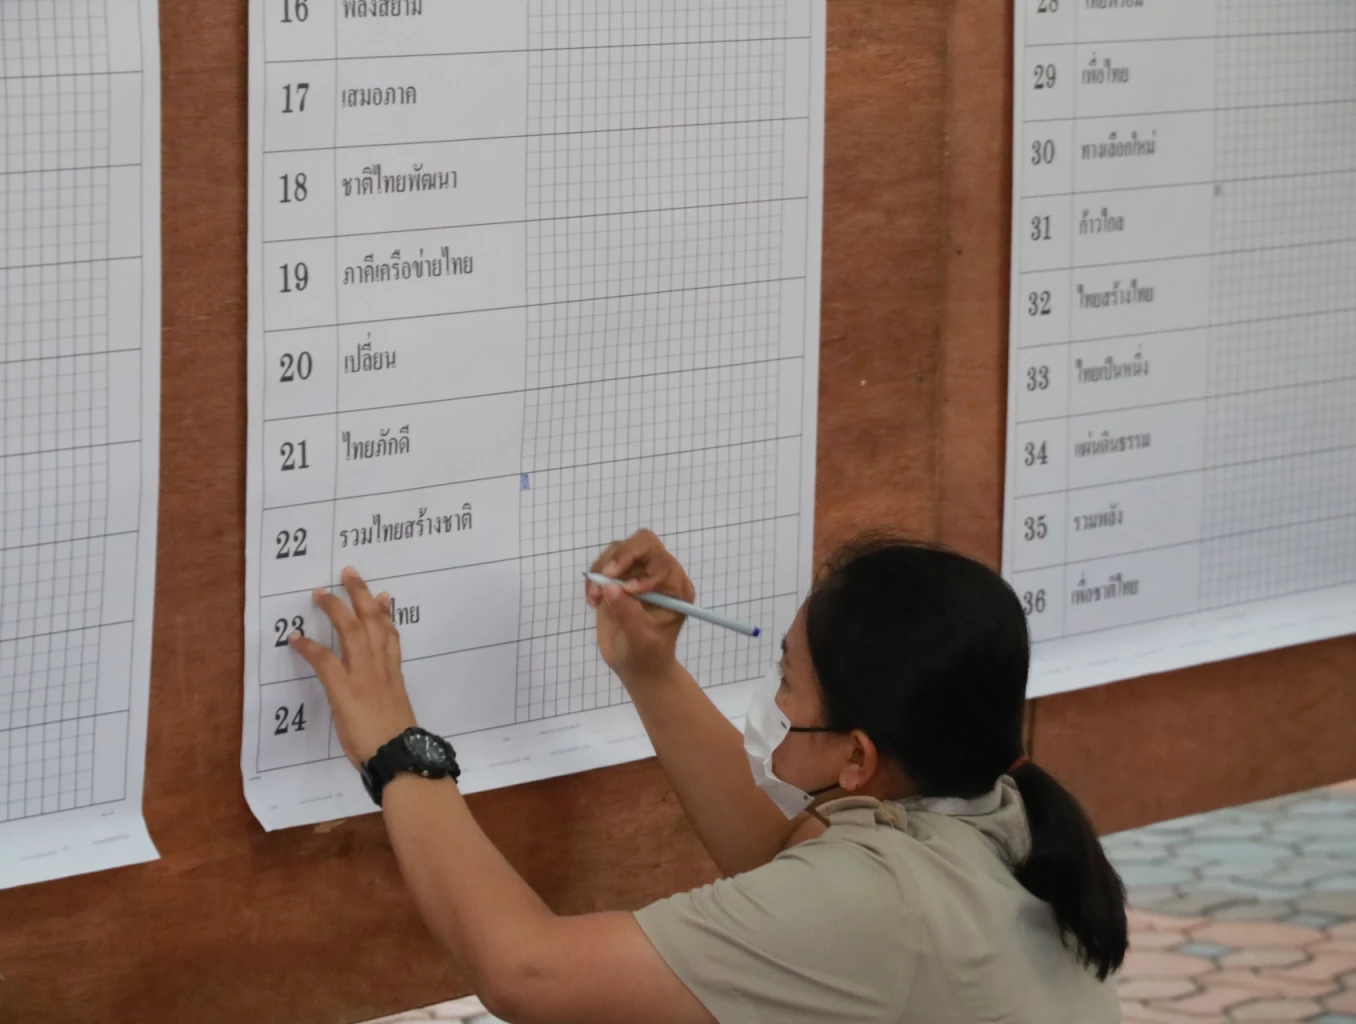 16 พลังสยาม
17 เสมอภาค
18 ชาติไทยพัฒนา
19 ภาคีเครือข่ายไทย
20 เปลี่ยน
21 ไทยภักดี
22 รวมไทยสร้างชาติ
23 ไทย
24
28 ไทยพร้อม
29 เพื่อไทย
30 ทางเลือกใหม่
31 ก้าวไกล
32 ไทยสร้างไทย
33 ไทยเป็นหนึ่ง
34 แผ่นดินธรรม
35 รวมพลัง
36 เพื่อชาติไทย